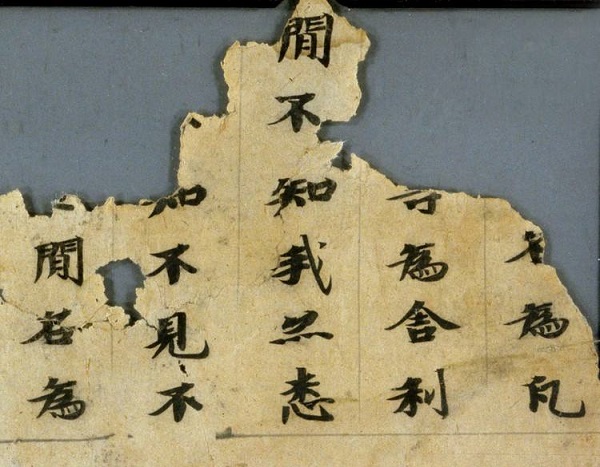 為凡
為舍利
聞不知我亦悉
知不見不
聞名為